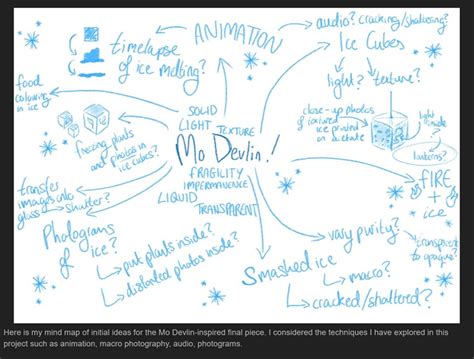 ANIMATION
audio? cracking/shattering?
Ice Cubes
light? texture?
timelapse
of ice melting?
food
colouring
in ice
close-up photos
of textured
ice printed on
acetate
light
inside
lanterns?
freezing plants
and photos in
ice cubes?
SOLID
LIGHT TEXTURE
Mo Devlin!
FRAGILITY
IMPERMANENCE
LIQUID
TRANSPARENT
FIRE
+
ice
transfer
images onto
glass → shatter?
Photograms
of
ice?
put plants inside?
distorted photos inside?
Smashed ice
macro?
cracked/shattered?
vary purity?
transparent
to opaque?
Here is my mind map of initial ideas for the Mo Devlin-inspired final piece. I considered the techniques I have explored in this
project such as animation, macro photography, audio, photograms.